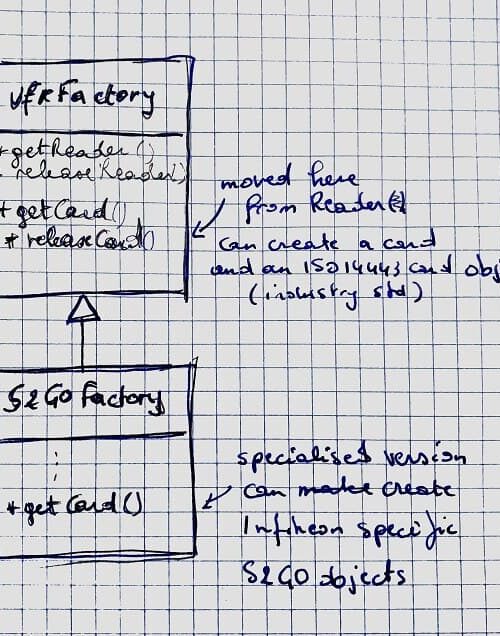 VfkFactory
+getReader()
releaseReader()
+ getCard()
+ releaseCard()
moved here
from Reader(
can create a card
and an ISO14443 card obj
(industry std)
S2GO Factory
+getCard()
specialised version
can make create
Infineon specific
S2GO objects